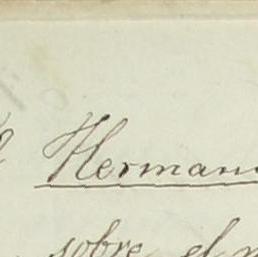 Herman
sobre el